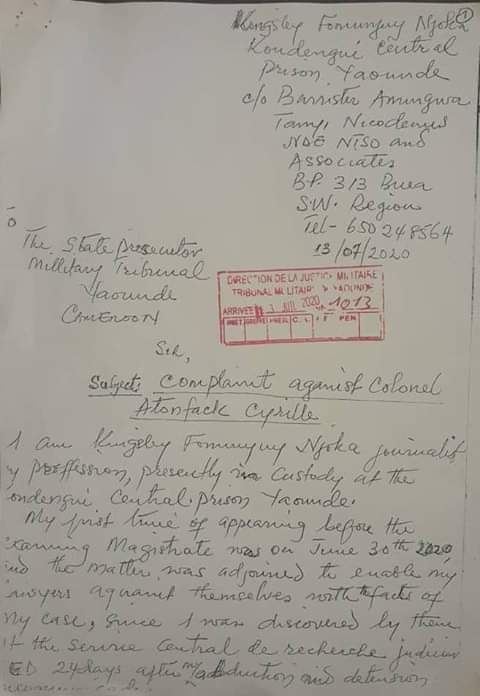 1
Kingsley Fomunyuy Njoka
Kondengui Central
Prison Yaounde
c/o Barrister Amungwa
Tanyi Nicodemus
NDE NTSO and
Associates
B.P. 313 Buea
S.W. Region
Tel- 650 248564
13/07/2020
o
The State Prosecutor
Millitary Tribunal
Yaounde
CAMEROON
DIRECTION DE LA JUSTICE MILITAIRE
TRIBUNAL MILITAIRE YAOUNDE
ARRIVEE 13 JUIL 2020 1013
PEN
Sir,
Subject: Complaint against Colonel
Atonfack Cyrille
I am Kingsley Fomunyuy Njoka journalist
y proffession, presently in custody at the
ondengui Central Prison Yaounde.
My first time of appearing before the
xamining Magistrate was on June 30th 2020,
nd the matter was adjourned to enable my
awyers aquaint themselves with facts of
My case, since I was discovered by them
t the service Central de recherche judiciai
ED 24 days after my abduction and detension